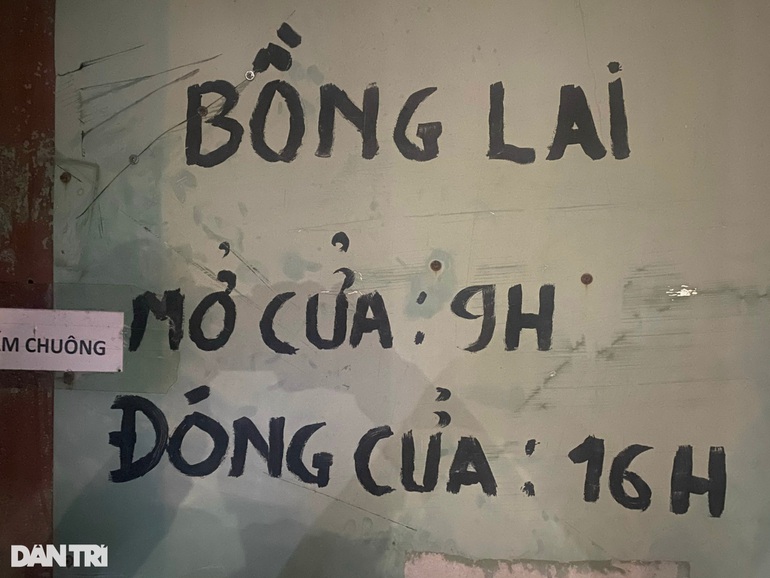 BỒNG LAI
MỞ CỬA : 9H
CHUÔNG
ĐÓNG CỬA : 16H
DÂN TRÍ